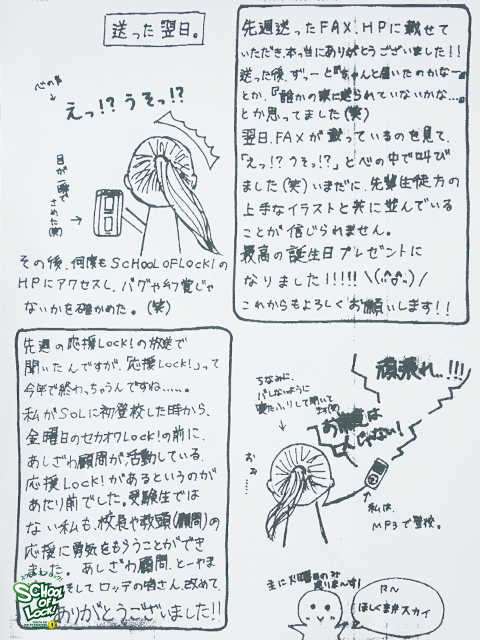 送った翌日。
心の声
えっ!? うそっ!?
目が一瞬で
さめた(笑)
その後、何度もSCHOOL OF LOCK!の
HPにアクセスし、バグや幻覚じゃ
ないかを確かめた。(笑)
先週送ったFAX、HPに載せて
いただき、本当にありがとうございました!!
送った後、ずーっと『ちゃんと届いたのかなー
とか、『誰かの家に送られていないかな…』
とか思ってました(笑)
翌日、FAXが載っているのを見て、
「えっ!? うそっ!?」と心の中で叫び
ました(笑)いまだに、先輩生徒方の
上手なイラストと共に並んでいる
ことが信じられません。
最高の誕生日プレゼントに
なりました!!!!
これからもよろしくお願いします!!
先週の応援LOCK!の放送で
聞いたんですが、応援LOCK!」って
今年で終わっちゃうんですね……。
私がSOLに初登校した時から、
金曜日のセカオワLOCK!の前に、
あしざわ顧問が活動している、
応援LOCK!があるというのが
あたり前でした。受験生では
ない私も、校長や教頭(顧問)の
応援に勇気をもらうことができ
ました。あしざわ顧問、とーやま
そしてロッテの皆さん、改めて、
ありがとうございました!!
頑張れ…!!!
ちなみに、
バレないように
寝たふりして聞いて
お前は
じゃない!
おお……
私は、
MP3で登校。
主に火曜日のみ
RN
ほしぞらスカイ
SCHOOL
OF
LOCK!